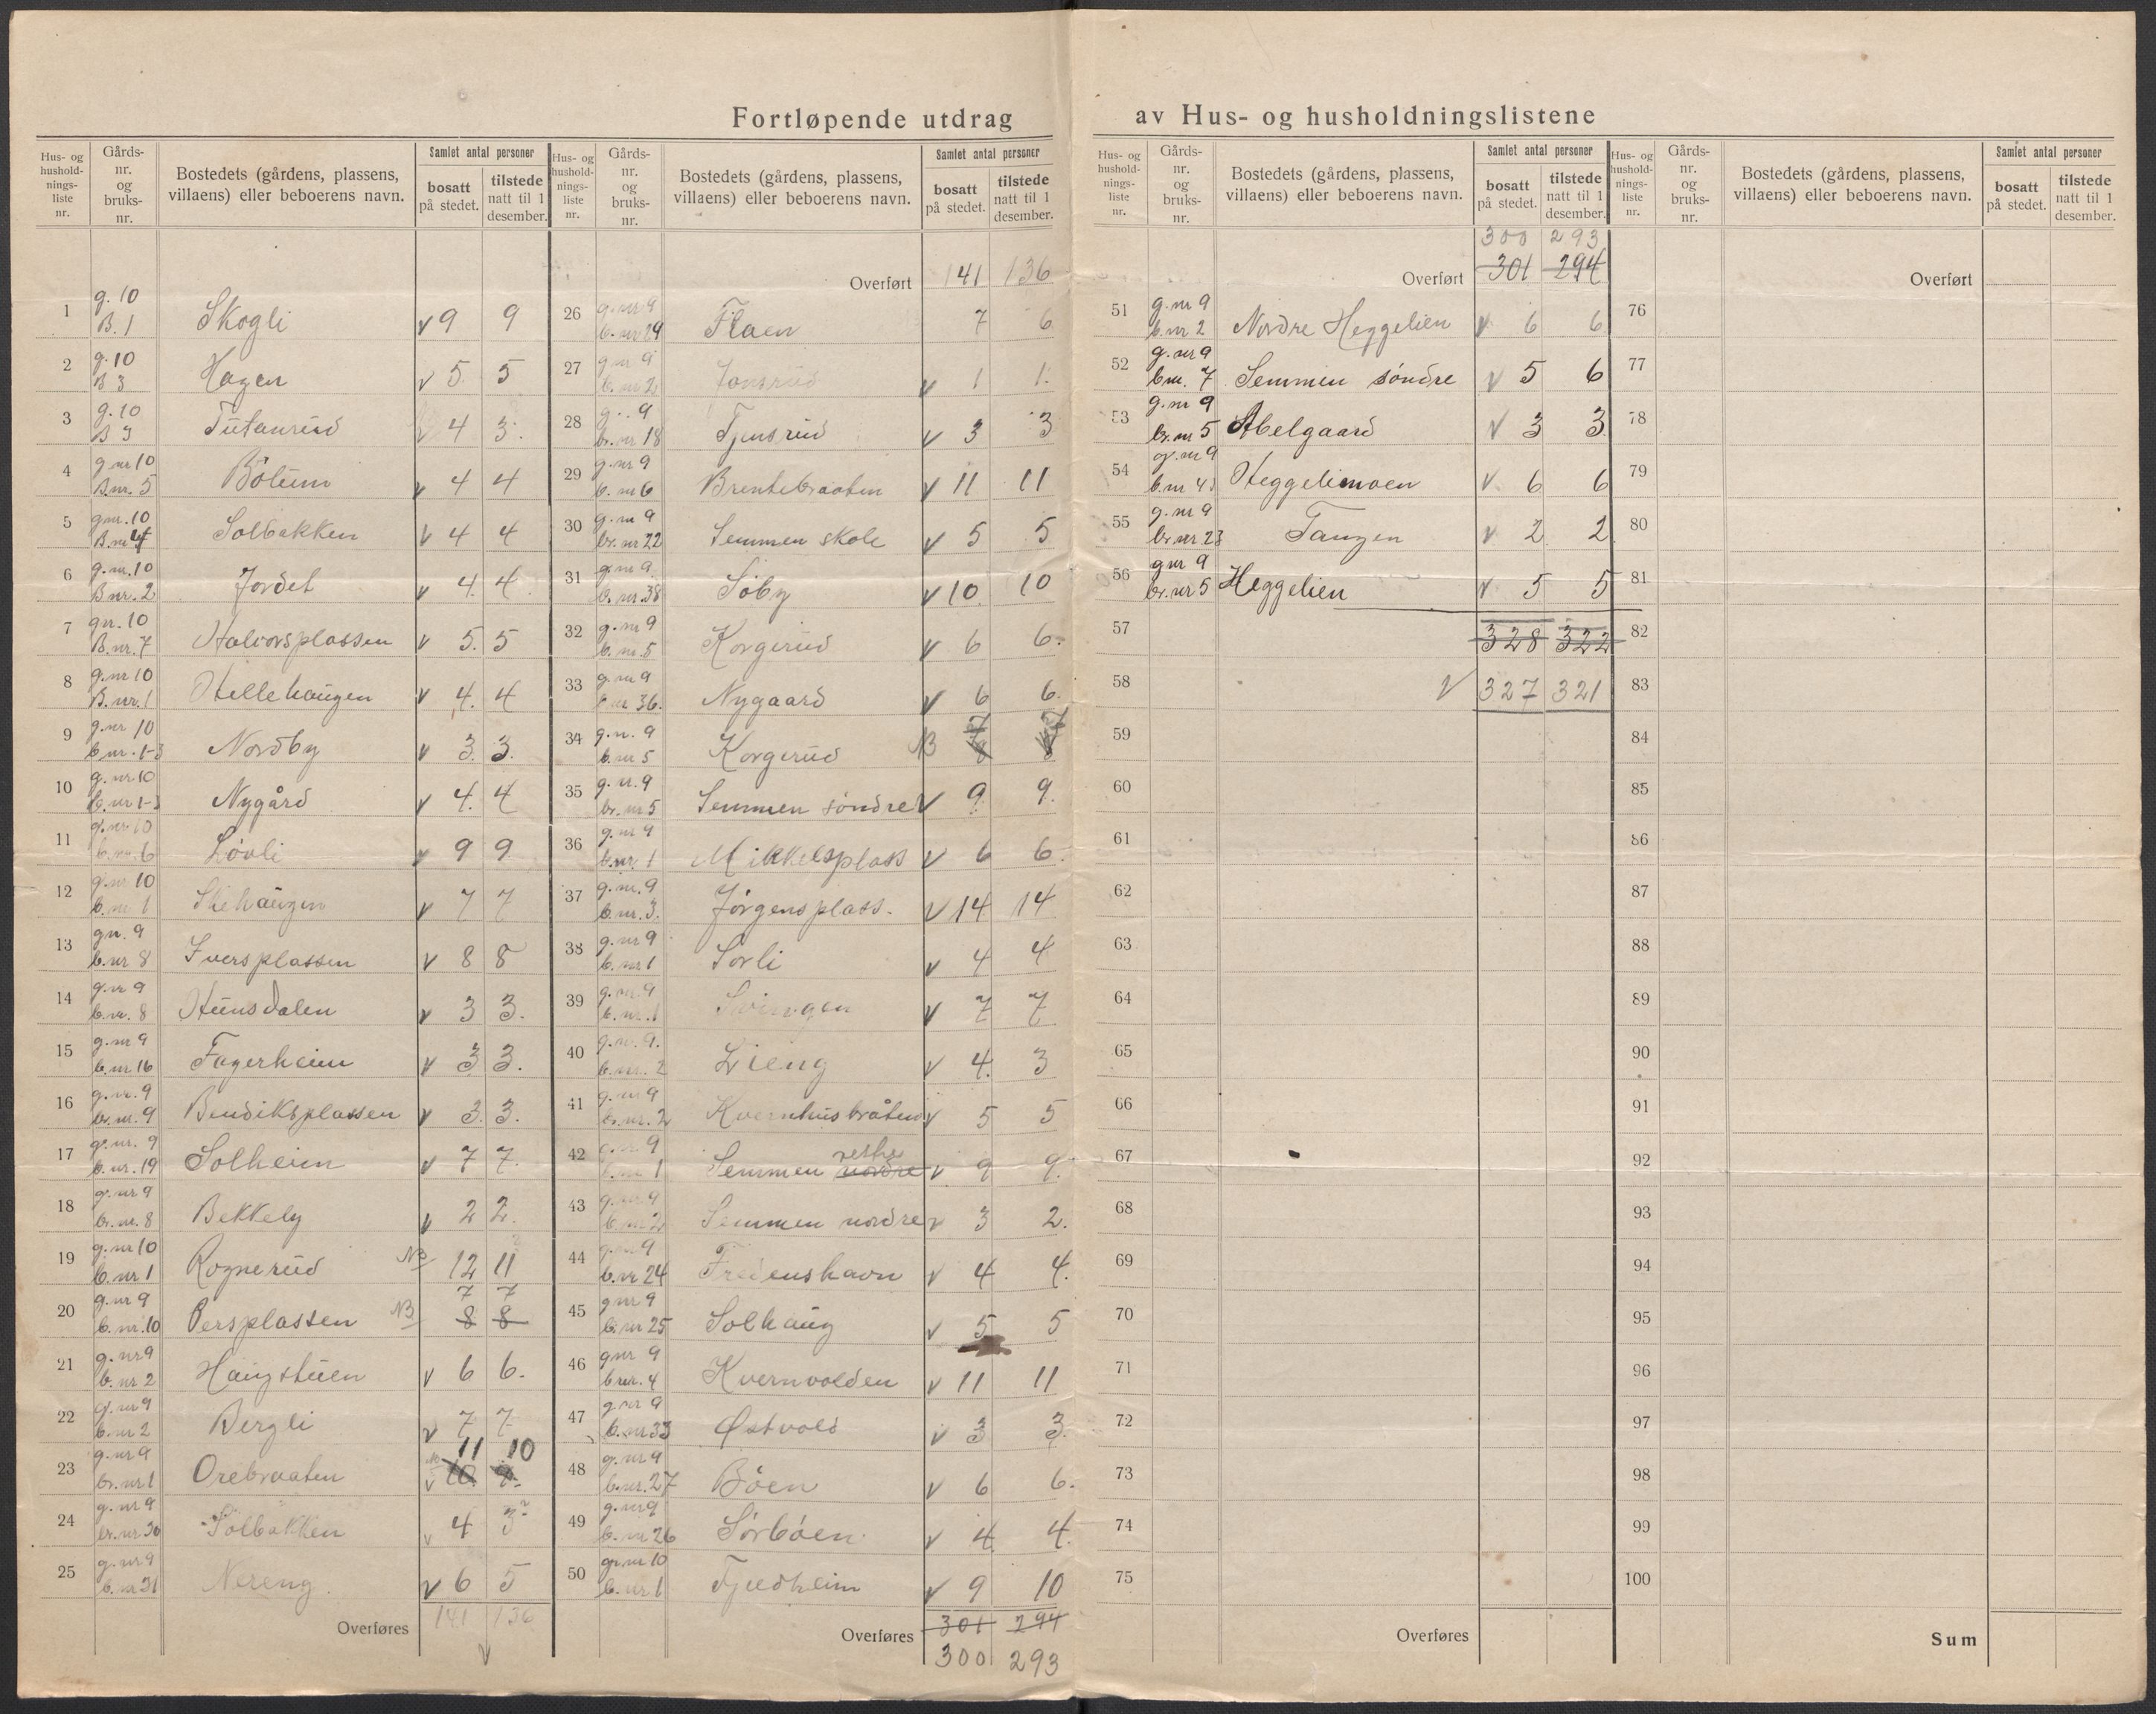 Fortløpende utdrag av Hus- og husholdningslistene
Hus- og husholdnings-liste nr. | Gårds-nr. og bruks-nr. | Bostedets (gårdens, plassens, villaens) eller beboerens navn. | Samlet antal personer | bosatt på stedet. | tilstede natt til 1 desember.
1 g. 10 B. 1 Skogli v 9 9
2 g. 10 B 3 Hagen v 5 5
3 g. 10 B 3 Tutanrud v 4 3.
4 g nr 10 B.nr. 5 Bölum v 4 4
5 g nr. 10 B.nr 4 Solbakken v 4 4
6 g. nr. 10 B nr. 2 Jordet v 4. 4.
7 gn. 10 B. nr. 7 Halvorsplassen v 5. 5
8 g. nr 10 B. nr. 1 Hellehaugen v 4. 4
9 g. nr 10 b. nr. 1-3 Nordby v 3. 3.
10 g. nr 10 b. nr 1-3 Nygård v 4. 4
11 g. nr 10 b. nr. 6 Lövli v 9 9
12 g. nr 10 b. nr 1 Stehaugen v 7 7
13 gn. 9 b. nr 8 Iversplassen v 8 8
14 g. nr 9 b. nr. 8 Hunsdalen v 3 3.
15 g. nr 9 b. nr 16 Fagerheim v 3 3.
16 g. nr. 9 b. nr. 9 Bendiksplassen v 3. 3.
17 g. nr. 9 b. nr. 19 Solheim v 7 7.
18 g. nr 9 b. nr. 8 Bekkely v 2 2.
19 g. nr 10 b. nr 1 Rognerud NB 12 11
7 7
20 g. nr 9 b. nr. 10 Persplassen NB 8 8
21 g. nr 9 b. nr 2 Haugstuen v 6 6.
22 g. nr 9 b. nr 2 Bergli v 7 7
11 10
23 g. nr 9 b. nr 1 Orebraaten v 10 9.
24 g. nr 9 b. nr 30 Solbakken v 4 3
25 g. nr 9 b. nr 31 Nereng. v 6 5
Overføres 141 136
v
Hus- og husholdnings-liste nr. | Gårds-nr. og bruks-nr. | Bostedets (gårdens, plassens, villaens) eller beboerens navn. | Samlet antal personer | bosatt på stedet. | tilstede natt til 1 desember.
Overført 141 136
26 g. nr 9 b. nr 29 Flaen 7 6
27 g nr 9 b. nr 2 Jonsrud v 1 1.
28 g. . 9 b. nr 18 Tjensrud v 3 3
29 g. nr 9 b. nr 6 Brentebraaten v 11 11
30 g. nr 9 b. nr 22 Semmen skole v 5 5
31 g. nr 9. b. nr. 38 Söby v 10. 10
32 g. nr 9 b. nr. 5 Korgerud v 6 6.
33 g. nr 9 b nr 36. Nygaard v 6 6.
7 7
34 g. n. 9 b. nr 5 Korgerud NB 8 8
35 g. n. 9 b. nr 5 Semmen söndre v 9 9.
36 g. nr 9 b. nr. 1 Mikkelsplass v 6 6.
37 g. nr. 9 b. nr. 3. Jörgensplass. v 14 14
38 g. nr 9 b. nr 1 Sörli v 4 4
39 g. nr. 9 b. nr. 1 Svingen v 7 7
40 g. nr. 9. b. nr. 2 Lieng v 4. 3
41 g. nr 9 b. nr. 2 Kvernhusbråten v 5 5
vestre
42 g. nr 9 b. nr 1 Semmen nordre v. 9 9.
43 g. nr 9 b. nr 2 Semmen nordre v 3 2.
44 g. nr 9 b. nr 24 Fredenshavn v 4 4.
45 g nr 9 b. nr 25 Solhaug v 5 5
46 gnr 9 b nr. 4 Kvernvolden v 11 11
47 g. nr 9 b. nr 33 Østvold v 3 3.
48 g. nr 9 b. nr. 27 Böen v 6 6.
49 g. nr 9 b. nr 26 Sörböen. v 4 4.
50 g. nr 10 b. nr 1 Fjeldheim v 9 10
Overføres 301 294
300 293
Hus- og husholdnings-liste nr. | Gårds-nr. og bruks-nr. | Bostedets (gårdens, plassens, villaens) eller beboerens navn. | Samlet antal personer | bosatt på stedet. | tilstede natt til 1 desember.
300 293
Overført 301 294
51 g. nr 9 b. nr 2 Nordre Heggelien v 6 6
52 g. nr 9 b nr. 7 Semmen söndre v 5 6
53 g. nr 9 b. nr 5 Abelgaard v 3 3
54 g. nr 9 b. nr 4 Heggelimoen v 6 6
55 g. nr 9 b. nr 23 Tangen v 2 2
56 g nr 9 b. nr 5 Heggelien v 5 5
57 328 322
58 v 327 321
59
60
61
62
63
64
65
66
67
68
69
70
71
72
73
74
75
Overføres
Hus- og husholdnings-liste nr. | Gårds-nr. og bruks-nr. | Bostedets (gårdens, plassens, villaens) eller beboerens navn. | Samlet antal personer | bosatt på stedet. | tilstede natt til 1 desember.
Overført
76
77
78
79
80
81
82
83
84
85
86
87
88
89
90
91
92
93
94
95
96
97
98
99
100
Sum